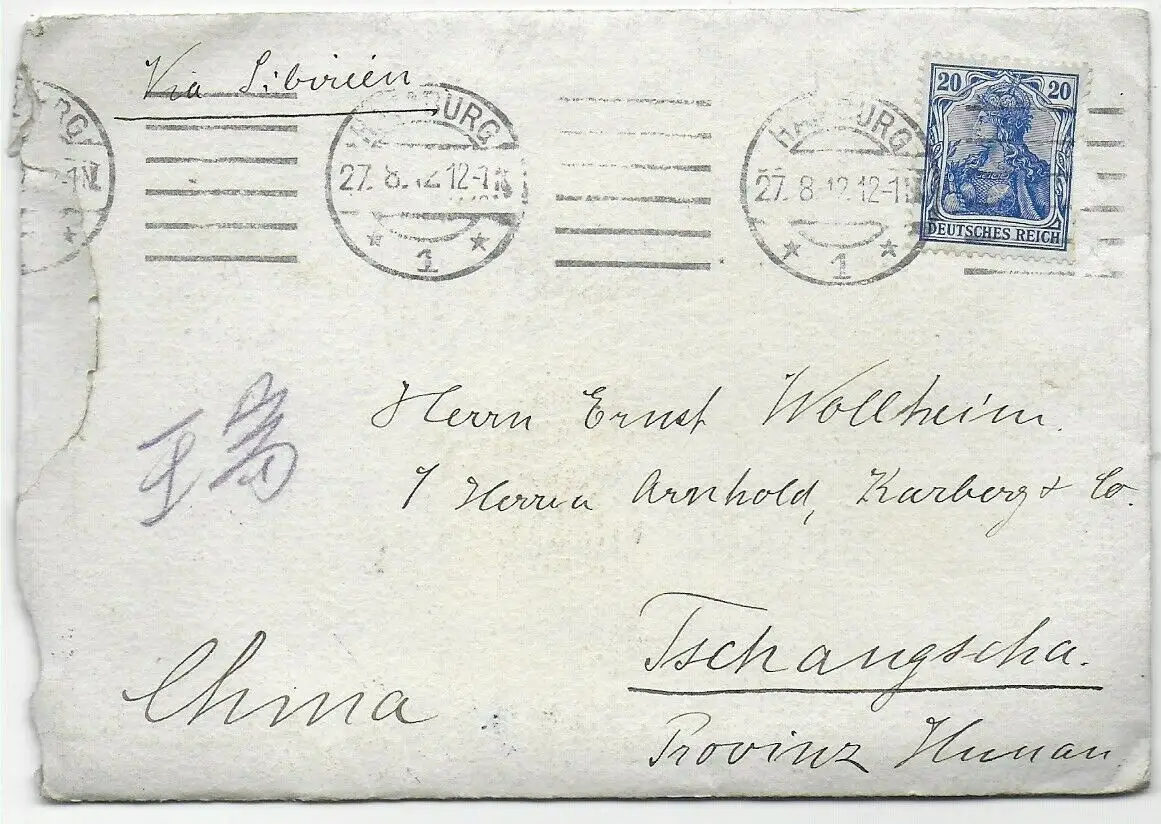 Via Sibirien
HAMBURG
27. 8. 12. 12-1 N
1
HAMBURG
27. 8. 12. 12-1
1
20 20
DEUTSCHES REICH
Herrn Ernst Wollheim.
/ Herren Arnhold, Karberg & Co.
Tschangscha.
China
Provinz Hunan